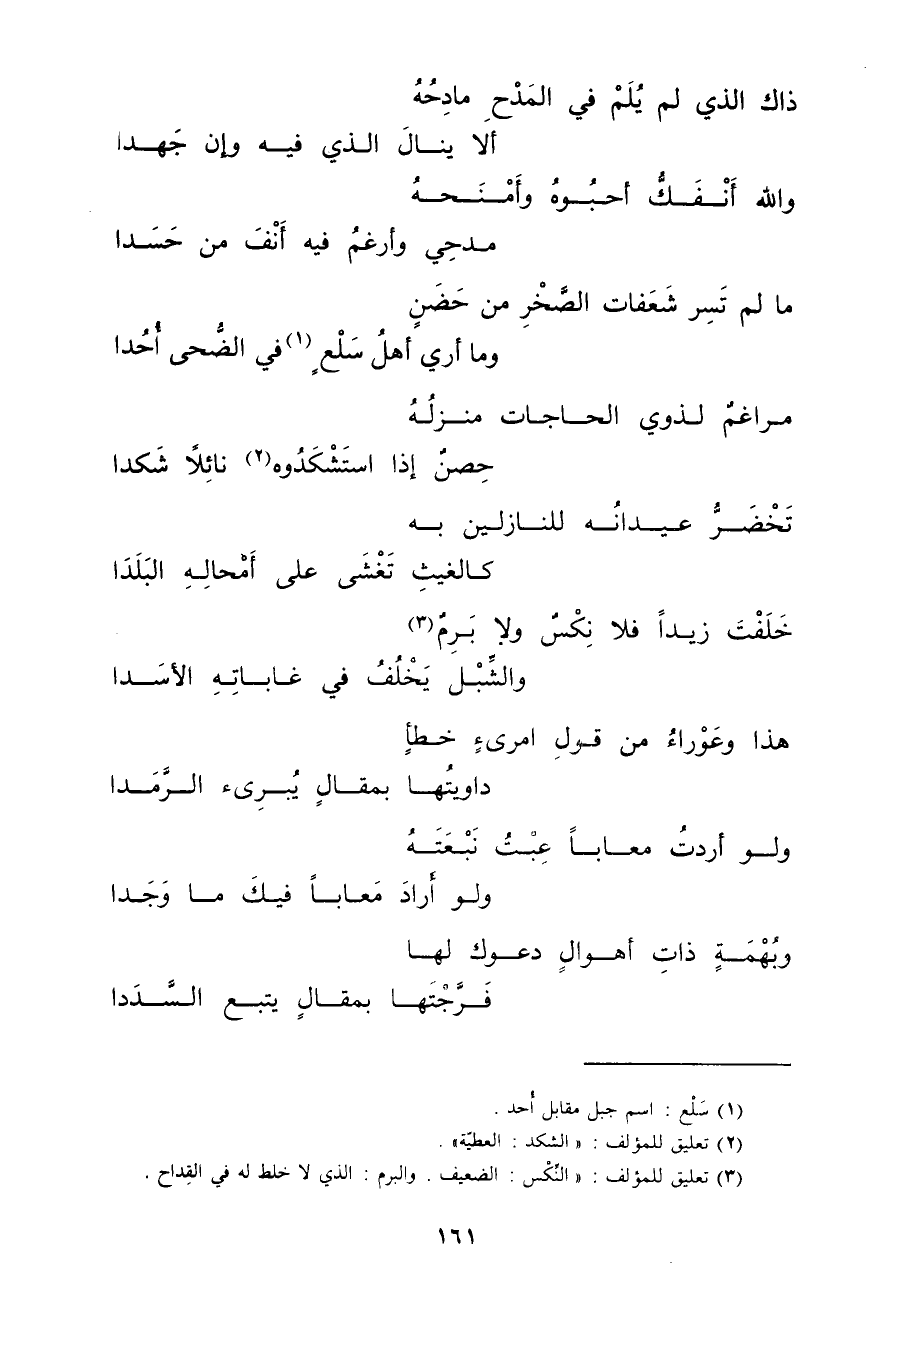 ذاك الذي لم يُلَمْ في المَدْحِ مادِحُهُ
ألا ينالَ الذي فيه وإن جَهدا
والله أَنْفَكُّ أحبُوهُ وأَمْنَحهُ
مدحِي وأرغمُ فيه أَنْفَ من حَسَدا
ما لم تَسِر شَعَفات الصَّخْرِ من حَضَنٍ
وما أري أهلُ سَلْعٍ(١) في الضُّحى أُحُدا
مراغمٌ لذوي الحاجات منزلُهُ
حِصنٌ إذا استَشْكَدُوه(٢) نائِلًا شَكدا
تَخْضَرُّ عيدانُه للنازلين به
كالغيثِ تَغْشَى على أَمْحالِهِ البَلَدَا
خَلَفْتَ زيداً فلا نِكْسٌ ولا بَرِمٌ(٣)
والشِّبْل يَخْلُفُ في غاباتِهِ الأسَدا
هذا وعَوْراءُ من قولِ امرىءٍ خطأٍ
داويتُها بمقالٍ يُبرىء الرَّمَدا
ولو أردتُ معاباً عِبْتُ نَبْعَتَهُ
ولو أَرادَ مَعاباً فيكَ ما وَجَدا
وبُهْمَةٍ ذاتِ أهوالٍ دعوك لها
فَرَّجْتَها بمقالٍ يتبع السَّدَدا
(١) سَلْع : اسم جبل مقابل أُحد .
(٢) تعليق للمؤلف : « الشكد : العطيّة» .
(٣) تعليق للمؤلف : « النِّكْس : الضعيف . والبرم : الذي لا خلط له في القِداح .
١٦١